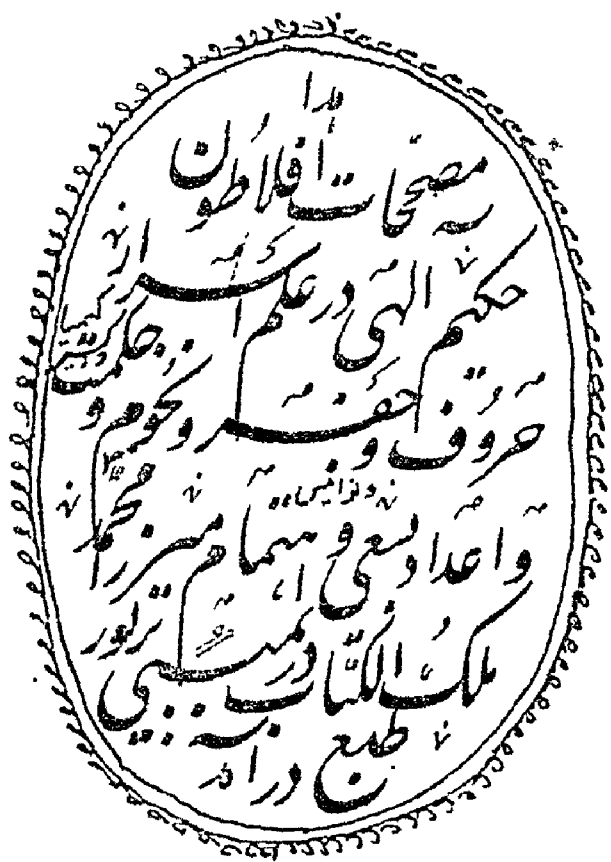 هذا
مصححات افلاطون
حکیم الهی در علم اکسیر از
حروف و جفر و نجوم و
و اعداد بسعی و اهتمام میرزا محمد
ملک الکتاب در بمبئی بزیور
طبع در آمد